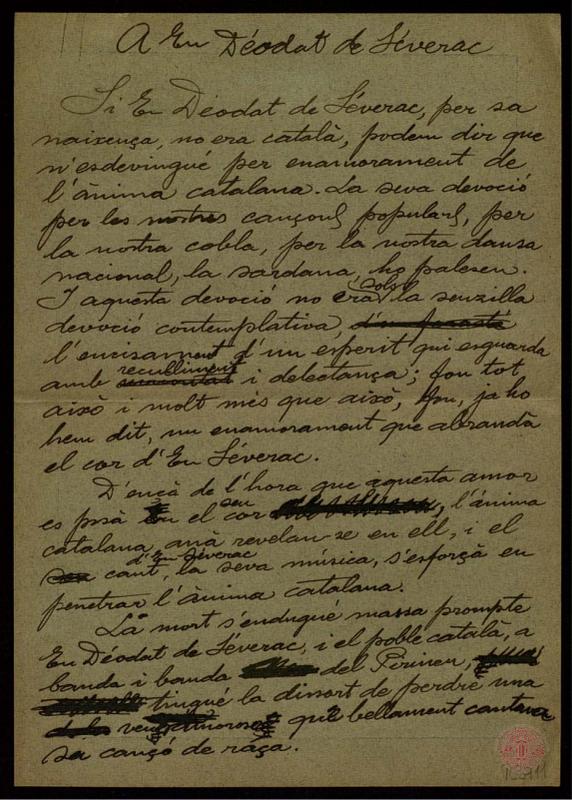 A En Déodat de Séverac
Si En Déodat de Séverac, per sa
naixença, no era català, podem dir que
n'esdevingué per enamorament de
l'ànima catalana. La seva devoció
per les nostres cançons populars, per
la nostra cobla, per la nostra dansa
nacional, la sardana, ho palesen.
sols
I aquesta devoció no era la senzilla
devoció contemplativa, d'un forastè
l'encisament d'un esperit qui esguarda
reculliment
amb i delectança; fou tot
això i molt més que això, fou, ja ho
hem dit, un enamorament que abrandà
el cor d'En Séverac.
D'ençà de l'hora que aquesta amor
seu
es posà en el cor, l'ànima
catalana anà revelan-se en ell, i el
d'En Séverac
seu cant, la seva música, s'esforçà en
penetrar l'ànima catalana.
La mort s'endugué massa prompte
En Déodat de Séverac, i el poble català, a
banda i banda del Pirineu,
tingué la dissort de perdre una
de les veus amoroses que bellament cantava
sa cançó de raça.